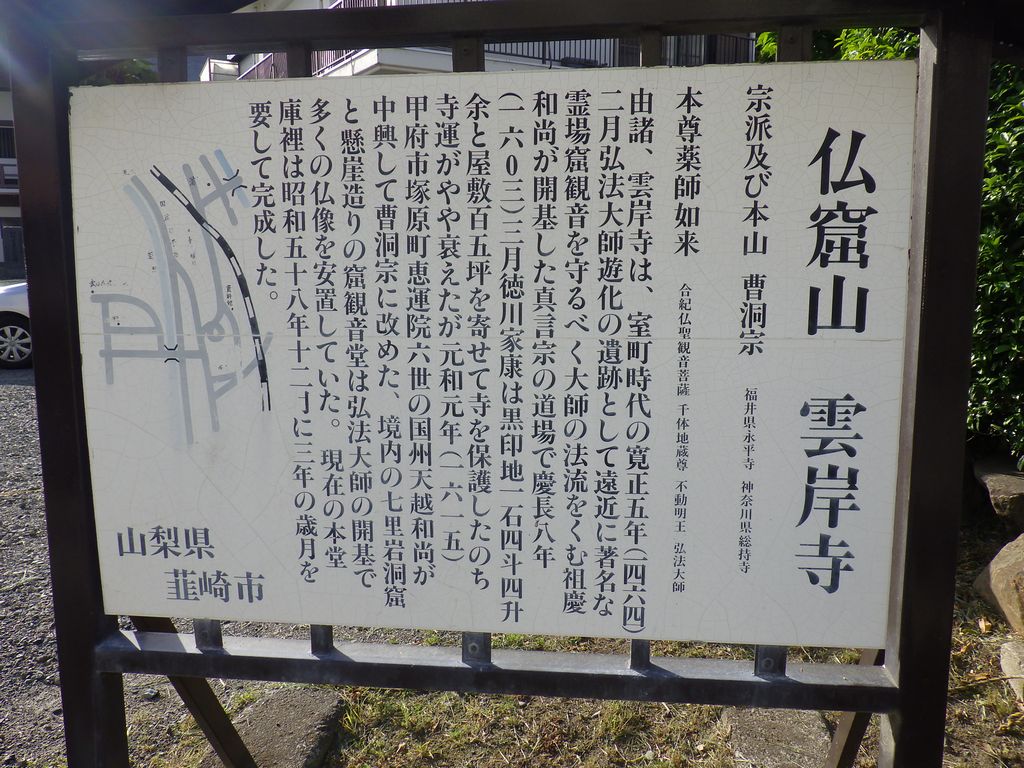 仏窟山　雲岸寺
宗派及び本山　曹洞宗　福井県永平寺　神奈川県総持寺
本尊薬師如来　合紀仏聖観音菩薩　千体地蔵尊　不動明王　弘法大師
由諸、雲岸寺は、室町時代の寛正五年(一四六四)
二月弘法大師遊化の遺跡として遠近に著名な
霊場窟観音を守るべく大師の法流をくむ祖慶
和尚が開基した真言宗の道場で慶長八年
(一六0三)三月徳川家康は黒印地一石四斗四升
余と屋敷百五坪を寄せて寺を保護したのち
寺運がやや衰えたが元和元年(一六一五)
甲府市塚原町恵運院六世の国州天越和尚が
中興して曹洞宗に改めた、境内の七里岩洞窟
と懸崖造りの窟観音堂は弘法大師の開基で
多くの仏像を安置していた。現在の本堂
庫裡は昭和五十八年十二月に三年の歳月を
要して完成した。
山梨県
韮崎市